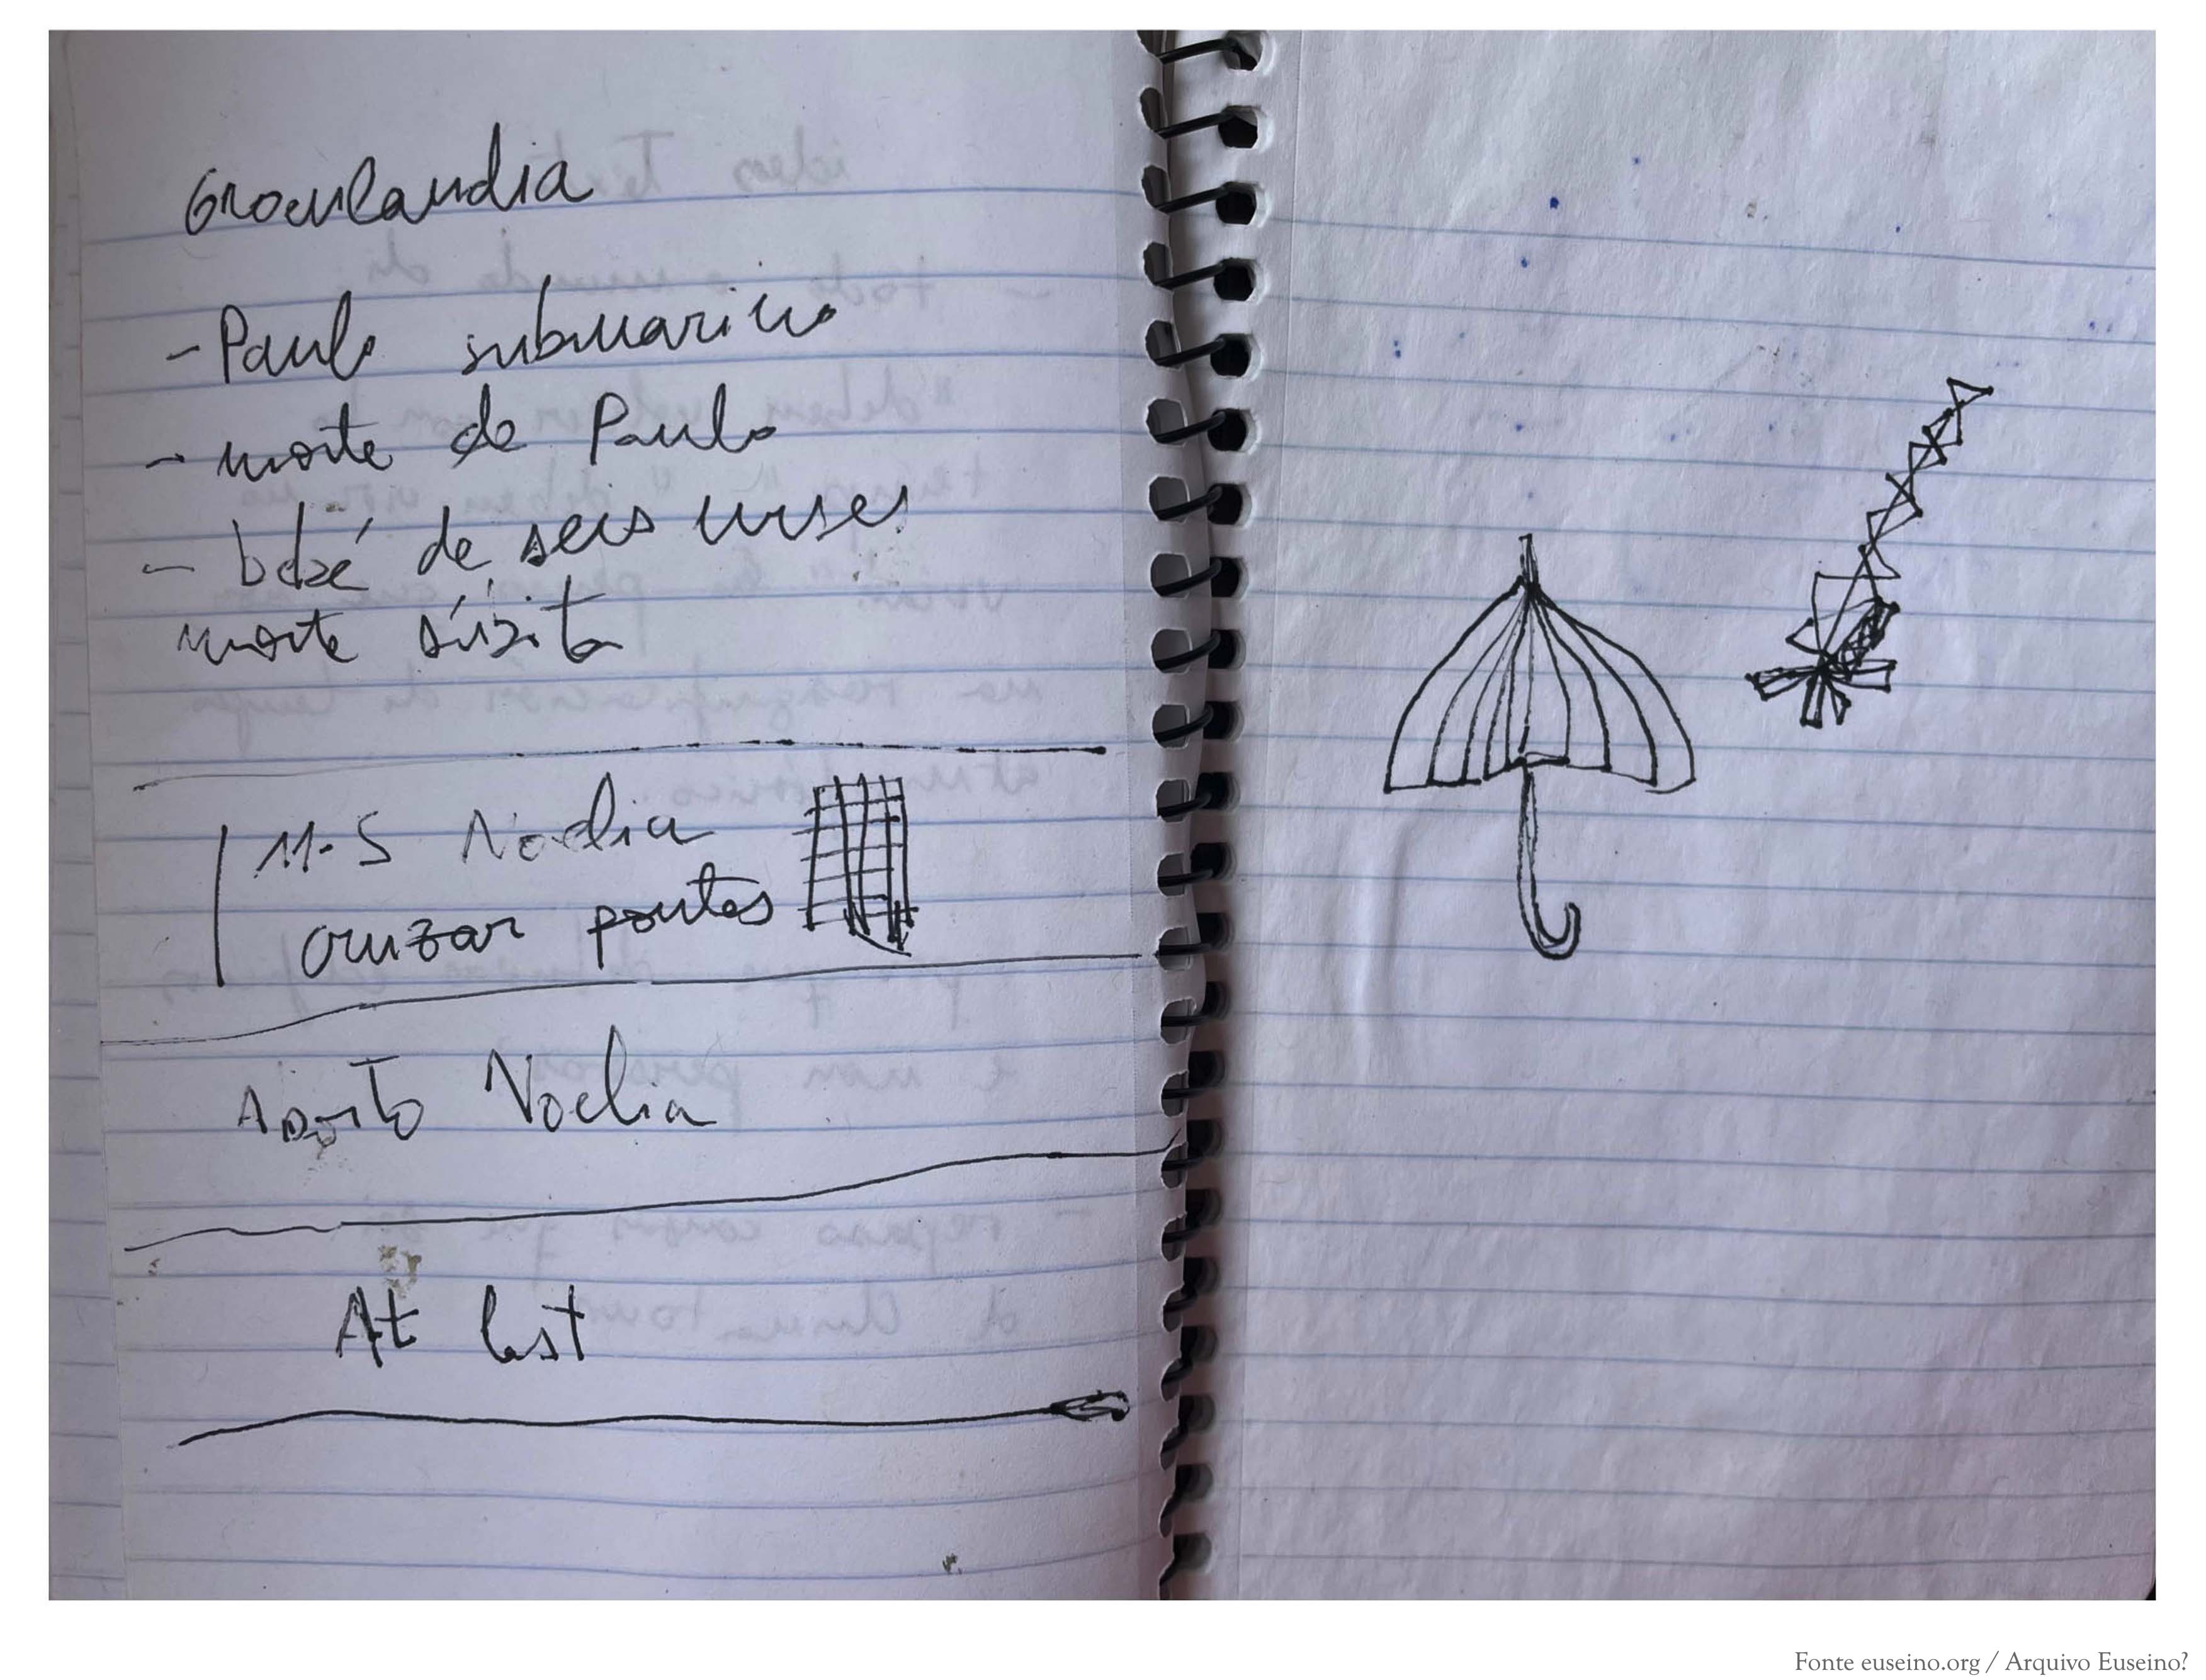 Groenlandia
- Paulo submarino
- morte de Paulo
- bebé de seis meses
morte súbita
M-S Noelia
cruzar pontes
Aborto Noelia
At last
Fonte euseino.org / Arquivo Euseino?